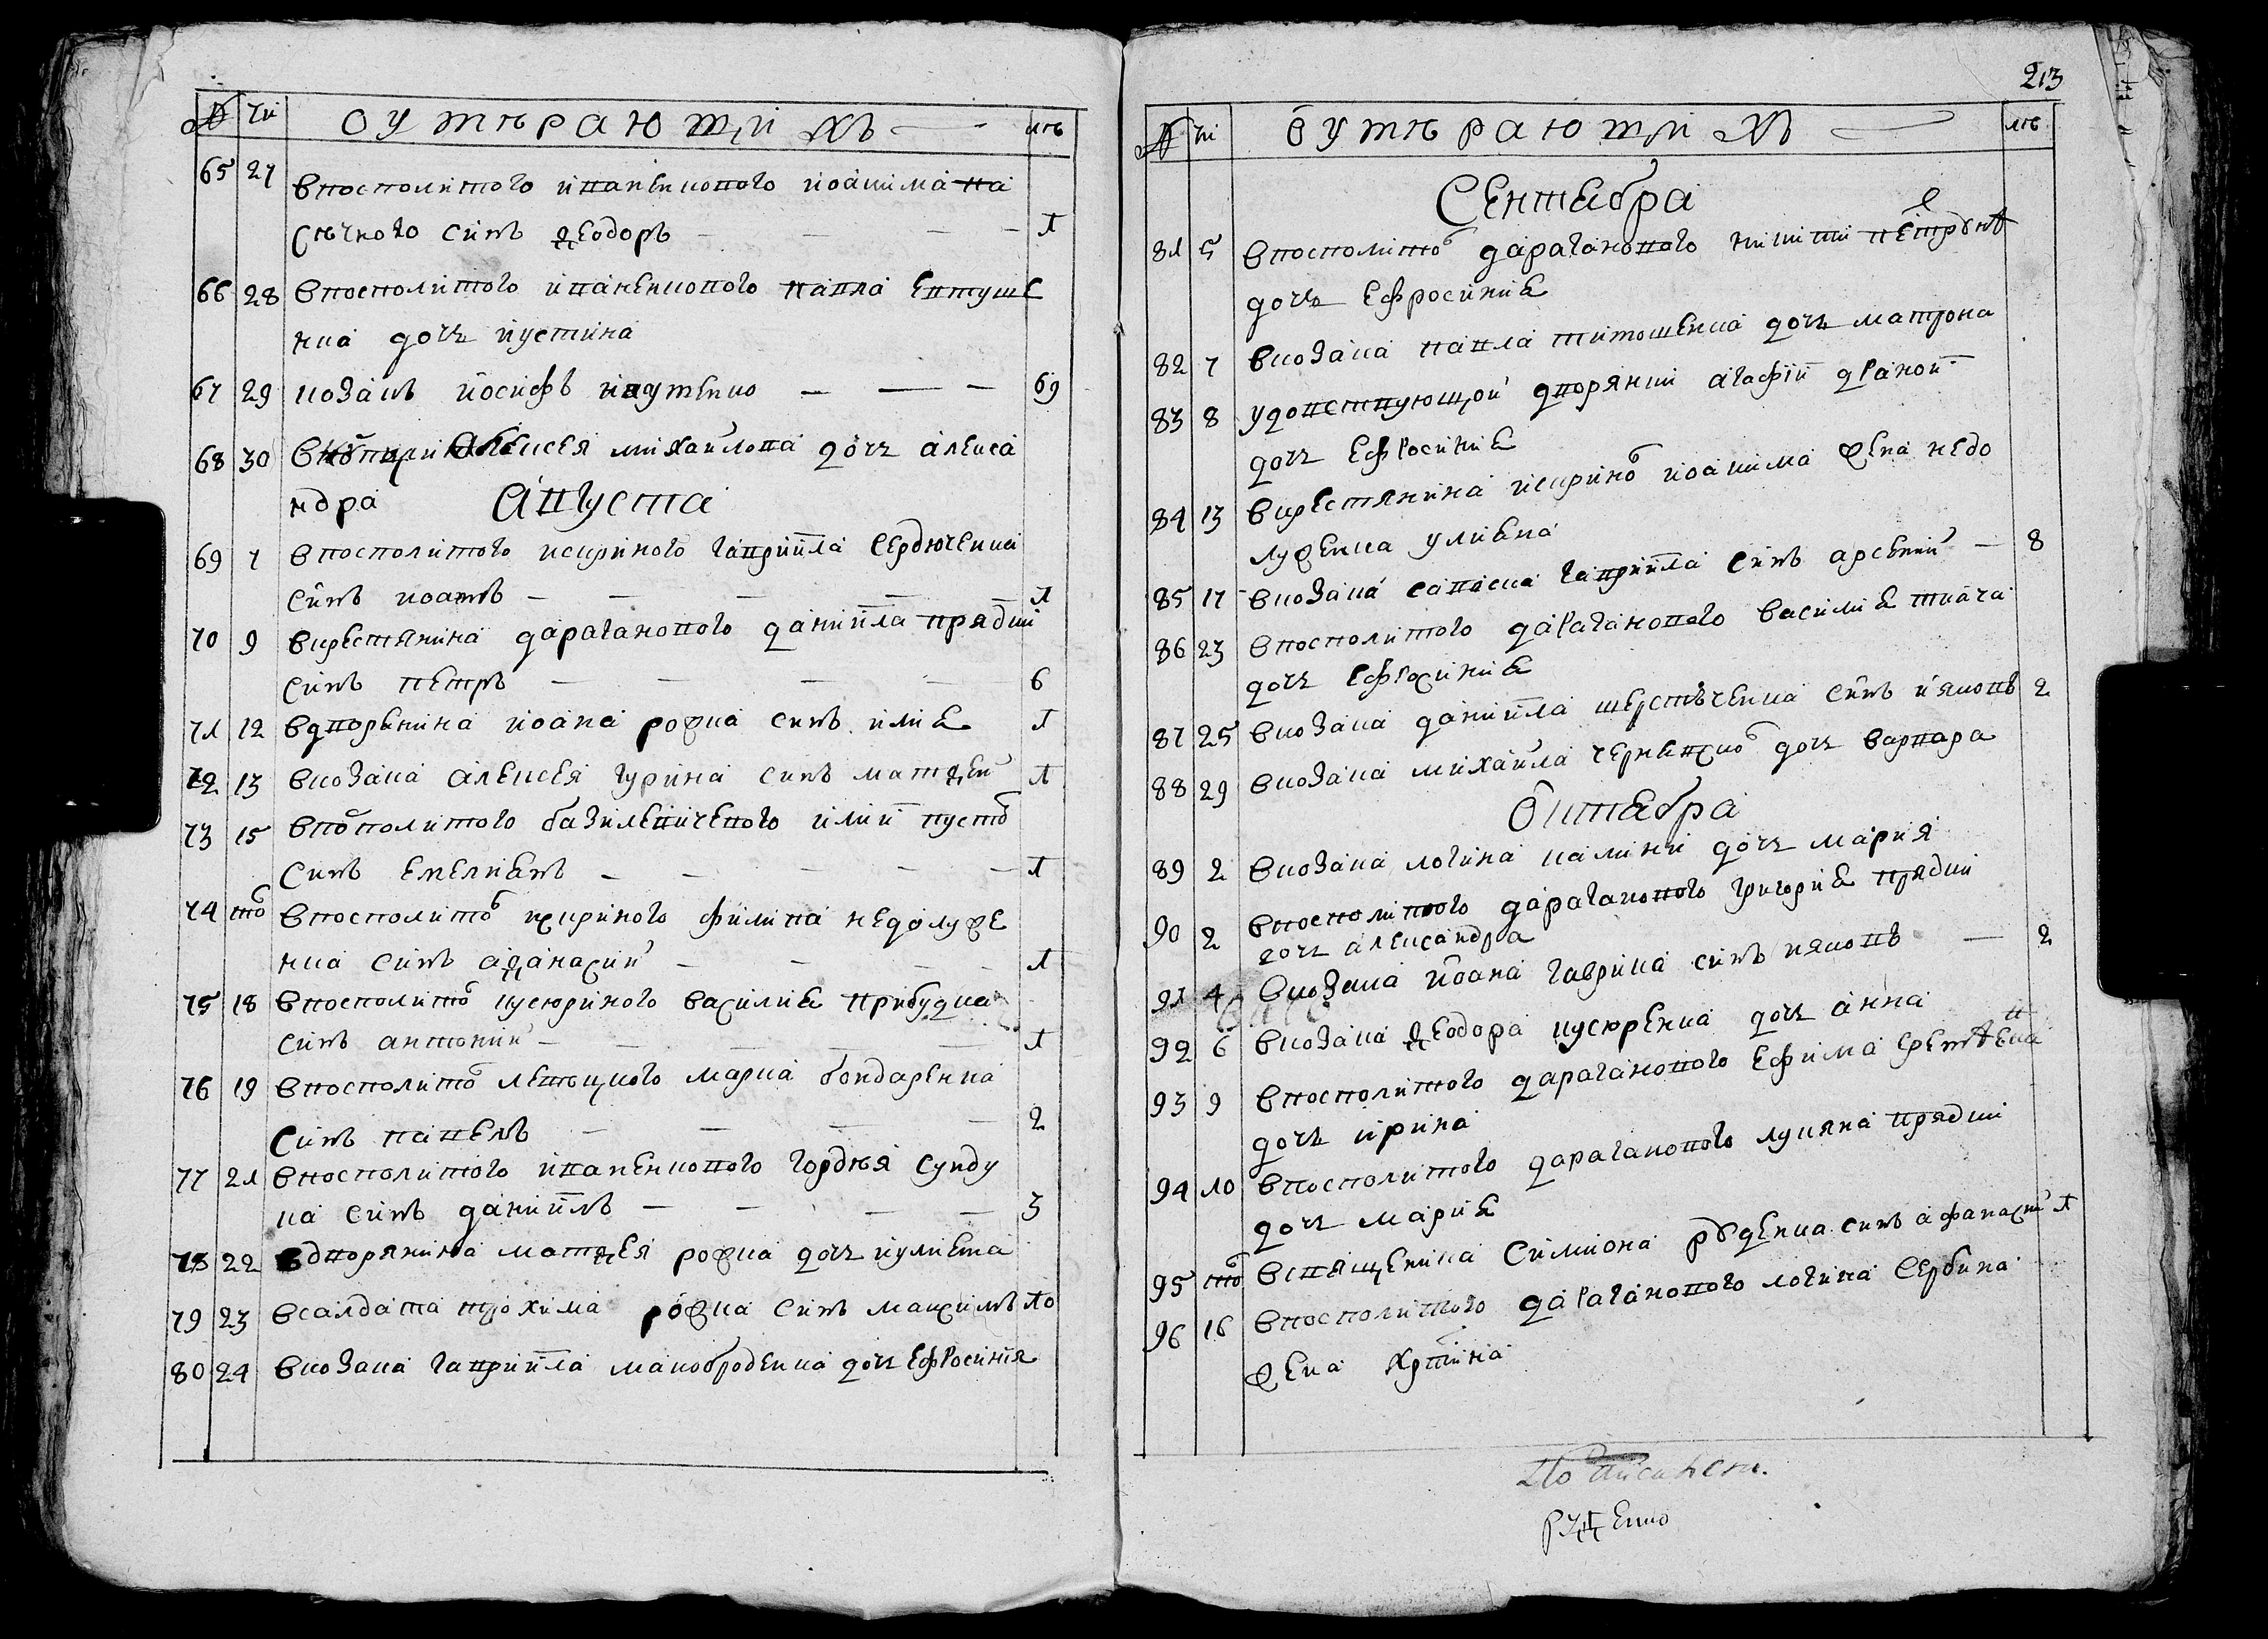 № чи о умѣрающихъ лѣ
65 27 в посполитого иваненкового иоакима па
сѣчного синъ ѳеодоръ 1
66 28 в посполитого иваненкового павла евтуше
нка дочъ иустина
67 29 козакъ иосифъ 69
68 30 алексея михайлова дочъ алекса
ндра Августа
69 1 в посполитого искриного гавриила сердюченка
синъ иоанъ 1
70 9 в крестянина дараганового даниила прядки
синъ петръ 6
71 12 в дворянина иоана рожка синъ илия 1
72 13 в козака алексея гурина синъ матѳей 1
73 15 в посполитого базилевичевого илии пусто
синъ емелианъ 1
74 то в посполито искриного филипа недолуже
нка синъ аѳанасий 1
75 18 в посполито кускориного василия прибудка
синъ антоний 1
76 19 в посполито марка бондаренка
синъ павелъ 2
77 21 в посполитого иваненкового гордѣя сунду
ка синъ даниилъ 3
78 22 в дворянина матѳея рожка дочъ иулиена
79 23 в салдата трохима рожка синъ максимъ 10
80 24 в козака гавриила макоброденка дочъ ефросиния
213
№ чи о умѣрающихъ лѣ
Сентября
81 5 в посполито дараганового никити петренка
дочъ ефросиния
82 7 в козака павла титошенка дочъ матрона
83 8 у довствующой дворянки агафии
дочъ ефросиния
84 13 в крестянина искрино иоакима жена недо
луженка улияна
85 17 в козака саваска гавриила синъ арсений 8
86 23 в посполитого дараганового василия ткача
дочъ ефросиния
87 25 в козака даниила шерстѣченка синъ ияковъ 2
88 29 в козака михайла чернявско дочъ варвара
Октября
89 2 в козака логина калики дочъ мария
90 2 в посполитого дараганового григория прядки
дочъ александра
91 4 в козака иоана гаврика синъ ияковъ 2
92 6 в козака ѳеодора кускоренка дочъ анна
93 9 в посполитого дараганового ефима
дочъ ирина
94 10 в посполитого дараганового лукяна прядки
дочъ мария
95 то в священика симиона рудденка синъ афанасий 1
96 16 в посполитого дараганового логина сербина
жена христина